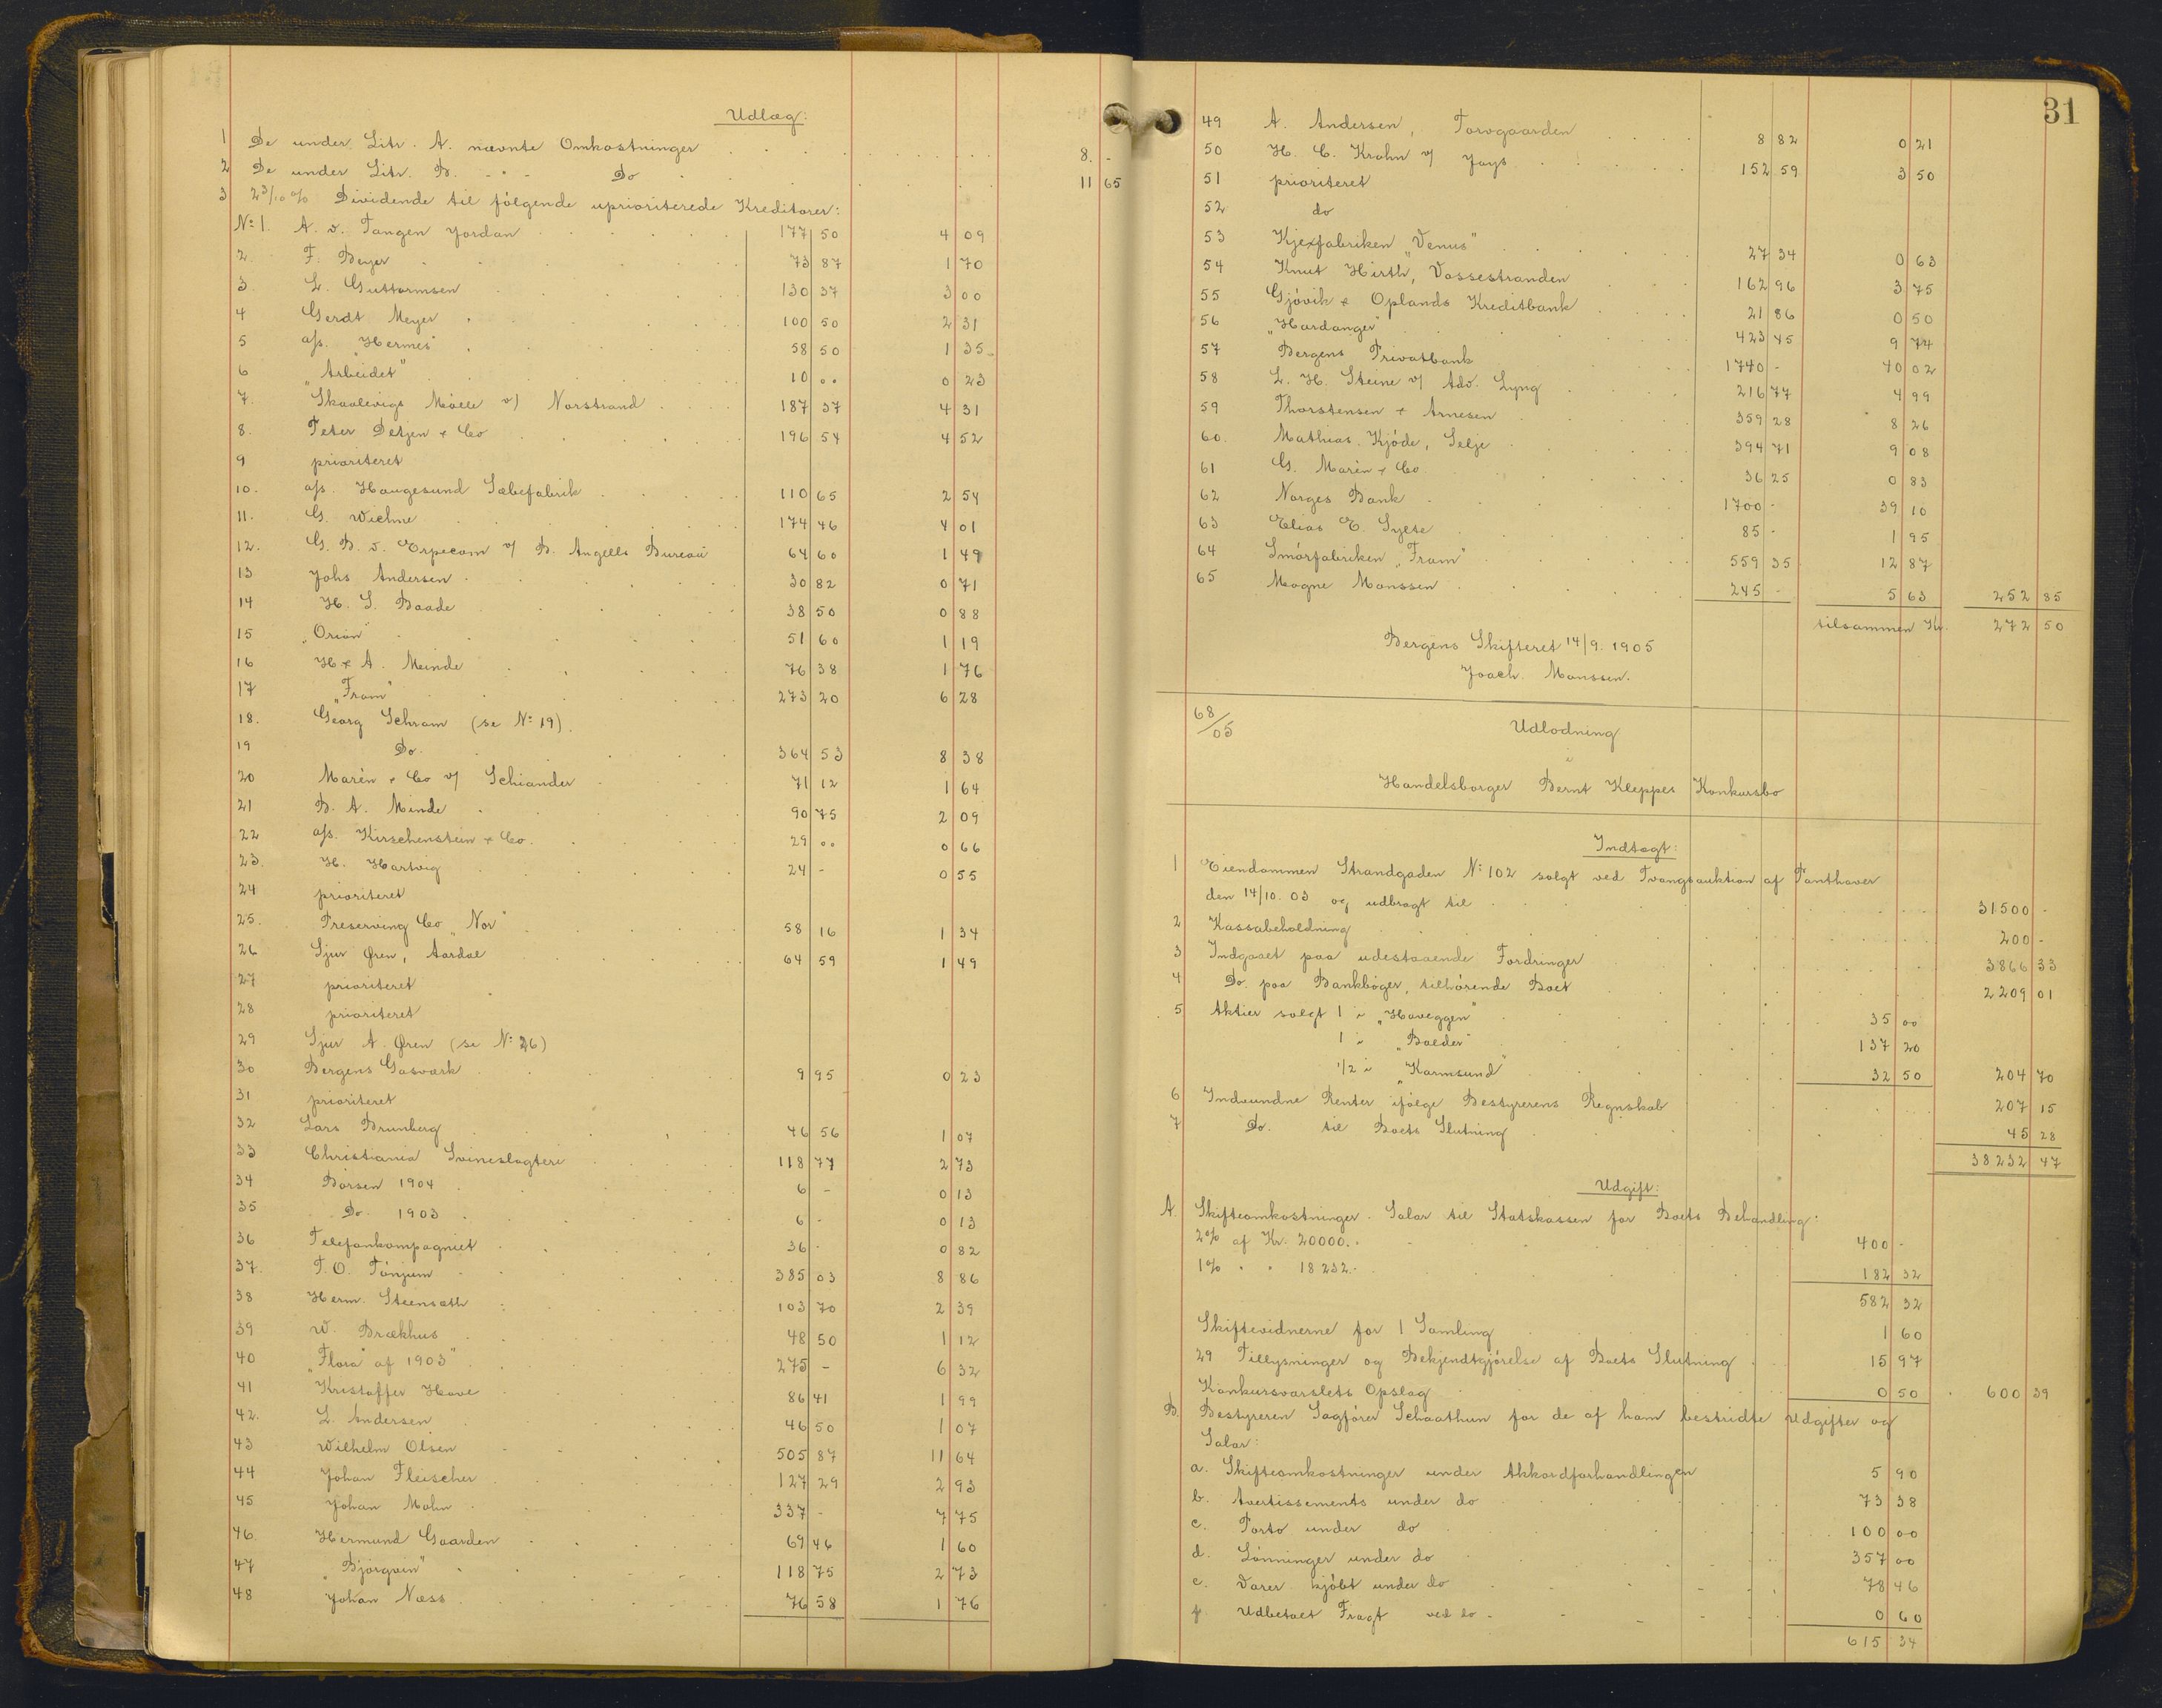 Udlæg:
1 De under Litr. A. nævnte Omkostninger 8. -
2 De under Litr. B. - " - Do 11 65
3 2 3/10 % Dividende til følgende uprioriterede Kreditorer:
No 1. A. v. Tangen Jordan 177 50 4 09
2. F. Beyer 73 87 1 70
3 L. Guttormsen 130 37 3 00
4 Gerdt Meyer 100 50 2 31
5 a/s. "Hermes" 58 50 1 35
6 "Arbeidet" 10 00 0 23
7. Skaalevigs Mølle v/ Norstrand 187 37 4 31
8. Peter Detjen & Co 196 54 4 52
9 prioriteret
10. a/s. Haugesund Sæbefabrik 110 65 2 54
11. G. Wielme 174 46 4 01
12. G. B. v. Erpecom v/ B. Angells Bureau 64 60 1 49
13 Johs Andersen 30 82 0 71
14 H. S. Baade 38 50 0 88
15 "Orion" 51 60 1 19
16 H & A. Meinde 76 38 1 76
17 "Fram" 273 20 6 28
18. Georg Schram (se No 19).
19 Do. 364 53 8 38
20 Marèn & Co v/ Schiander 71 12 1 64
21 B. A. Minde 90 75 2 09
22 a/s. Kirschenstein & Co. 29 00 0 66
23. H. Hartvig 24 - 0 55
24 prioriteret
25. Preserving Co "Nor" 58 16 1 34
26 Sjur Øren, Aardal 64 59 1 49
27 prioriteret
28 prioriteret
29 Sjur A. Øren (se No 26)
30 Bergens Gasværk 9 95 0 23
31 prioriteret
32 Lars Brunberg 46 56 1 07
33 Christiania Svineslagteri 118 77 2 73
34 Børsen 1904 6 - 0 13
35 Do. 1903 6 - 0 13
36 Telefonkompagniet 36 - 0 82
37. P. O. Tønjum 385 03 8 86
38 Herm. Steensath 103 70 2 39
39 W. Brækhus 48 50 1 12
40 "Flora" af 1903" 275 - 6 32
41 Kristoffer Hove 86 41 1 99
42. L. Andersen 46 50 1 07
43 Wilhelm Olsen 505 87 11 64
44 Johan Fleischer 127 29 2 93
45 Johan Mohn 337 - 7 75
46. Hermund Gaarden 69 46 1 60
47 "Bjørgvin" 118 75 2 73
48 Johan Næss 76 58 1 76
31
49 A. Andersen, Torvgaarden 8 82 0 21
50 H. C. Krohn v/ Jays 152 59 3 50
51 prioriteret
52 do
53 Kjexfabriken "Venus" 27 34 0 63
54 Knut Hirth, Vossestranden 162 96 3 75
55 Gjøvik & Oplands Kreditbank 21 86 0 50
56 "Hardanger" 423 45 9 74
57 Bergens Privatbank 1740 - 40 02
58 L. H. Steine v/ Adv. Lyng 216 77 4 99
59 Thorstensen & Arnesen 359 28 8 26
60. Mathias Kjøde, Selje 394 71 9 08
61 G. Marèn & Co. 36 25 0 83
62 Norges Bank 1700 - 39 10
63 Elias E. Sylte 85 - 1 95
64 Smørfabriken "Fram" 559 35 12 87
65 Mogne Monssen 245 - 5 63 252 85
tilsammen Kr. 272 50
Bergens Skifteret 14/9. 1905
Joach. Monssen.
68/05 Udlodning
i
Handelsborger Bernt Kleppes Konkursbo
Indtægt:
1 Eiendommen Strandgaden No 102 solgt ved Tvangsauktion af Panthaver
den 14/10. 03 og udbragt til 31500 -
2 Kassabeholdning 200 -
3 Indgaaet paa udestaaende Fordringer 3866 33
4 Do. paa Bankbøger, tilhørende Boet 2209 01
5 Aktier solgt 1 i "Haveggen" 35 00
1 i "Balder" 137 20
1/2 i "Karmsund" 32 50 204 70
6 Indvundne Renter ifølge Bestyrerens Regnskab 207 15
7 Do. til Boets Slutning 45 28
38232 47
Udgift:
A. Skifteomkostninger. Salar til Statskassen for Boets Behandling:
2% af Kr. 20000. - 400 -
1% " " 18232. - 182 32
582 32
Skiftevidnerne for 1 Samling 1 60
29 Tillysninger og Bekjendtgjørelse af Boets Slutning 15 97
Konkursvarslets Opslag 0 50 600 39
B. Bestyreren Sagfører Schaathun for de af ham bestridte Udgifter og
Salar:
a. Skifteomkostninger under Akkordforhandlingen 5 90
b. Avertissements under do 73 38
c. Porto under do 100 00
d. Lønninger under do 357 00
e. Varer kjøbt under do 78 46
f Udbetalt Fragt ved do 0 60
615 34